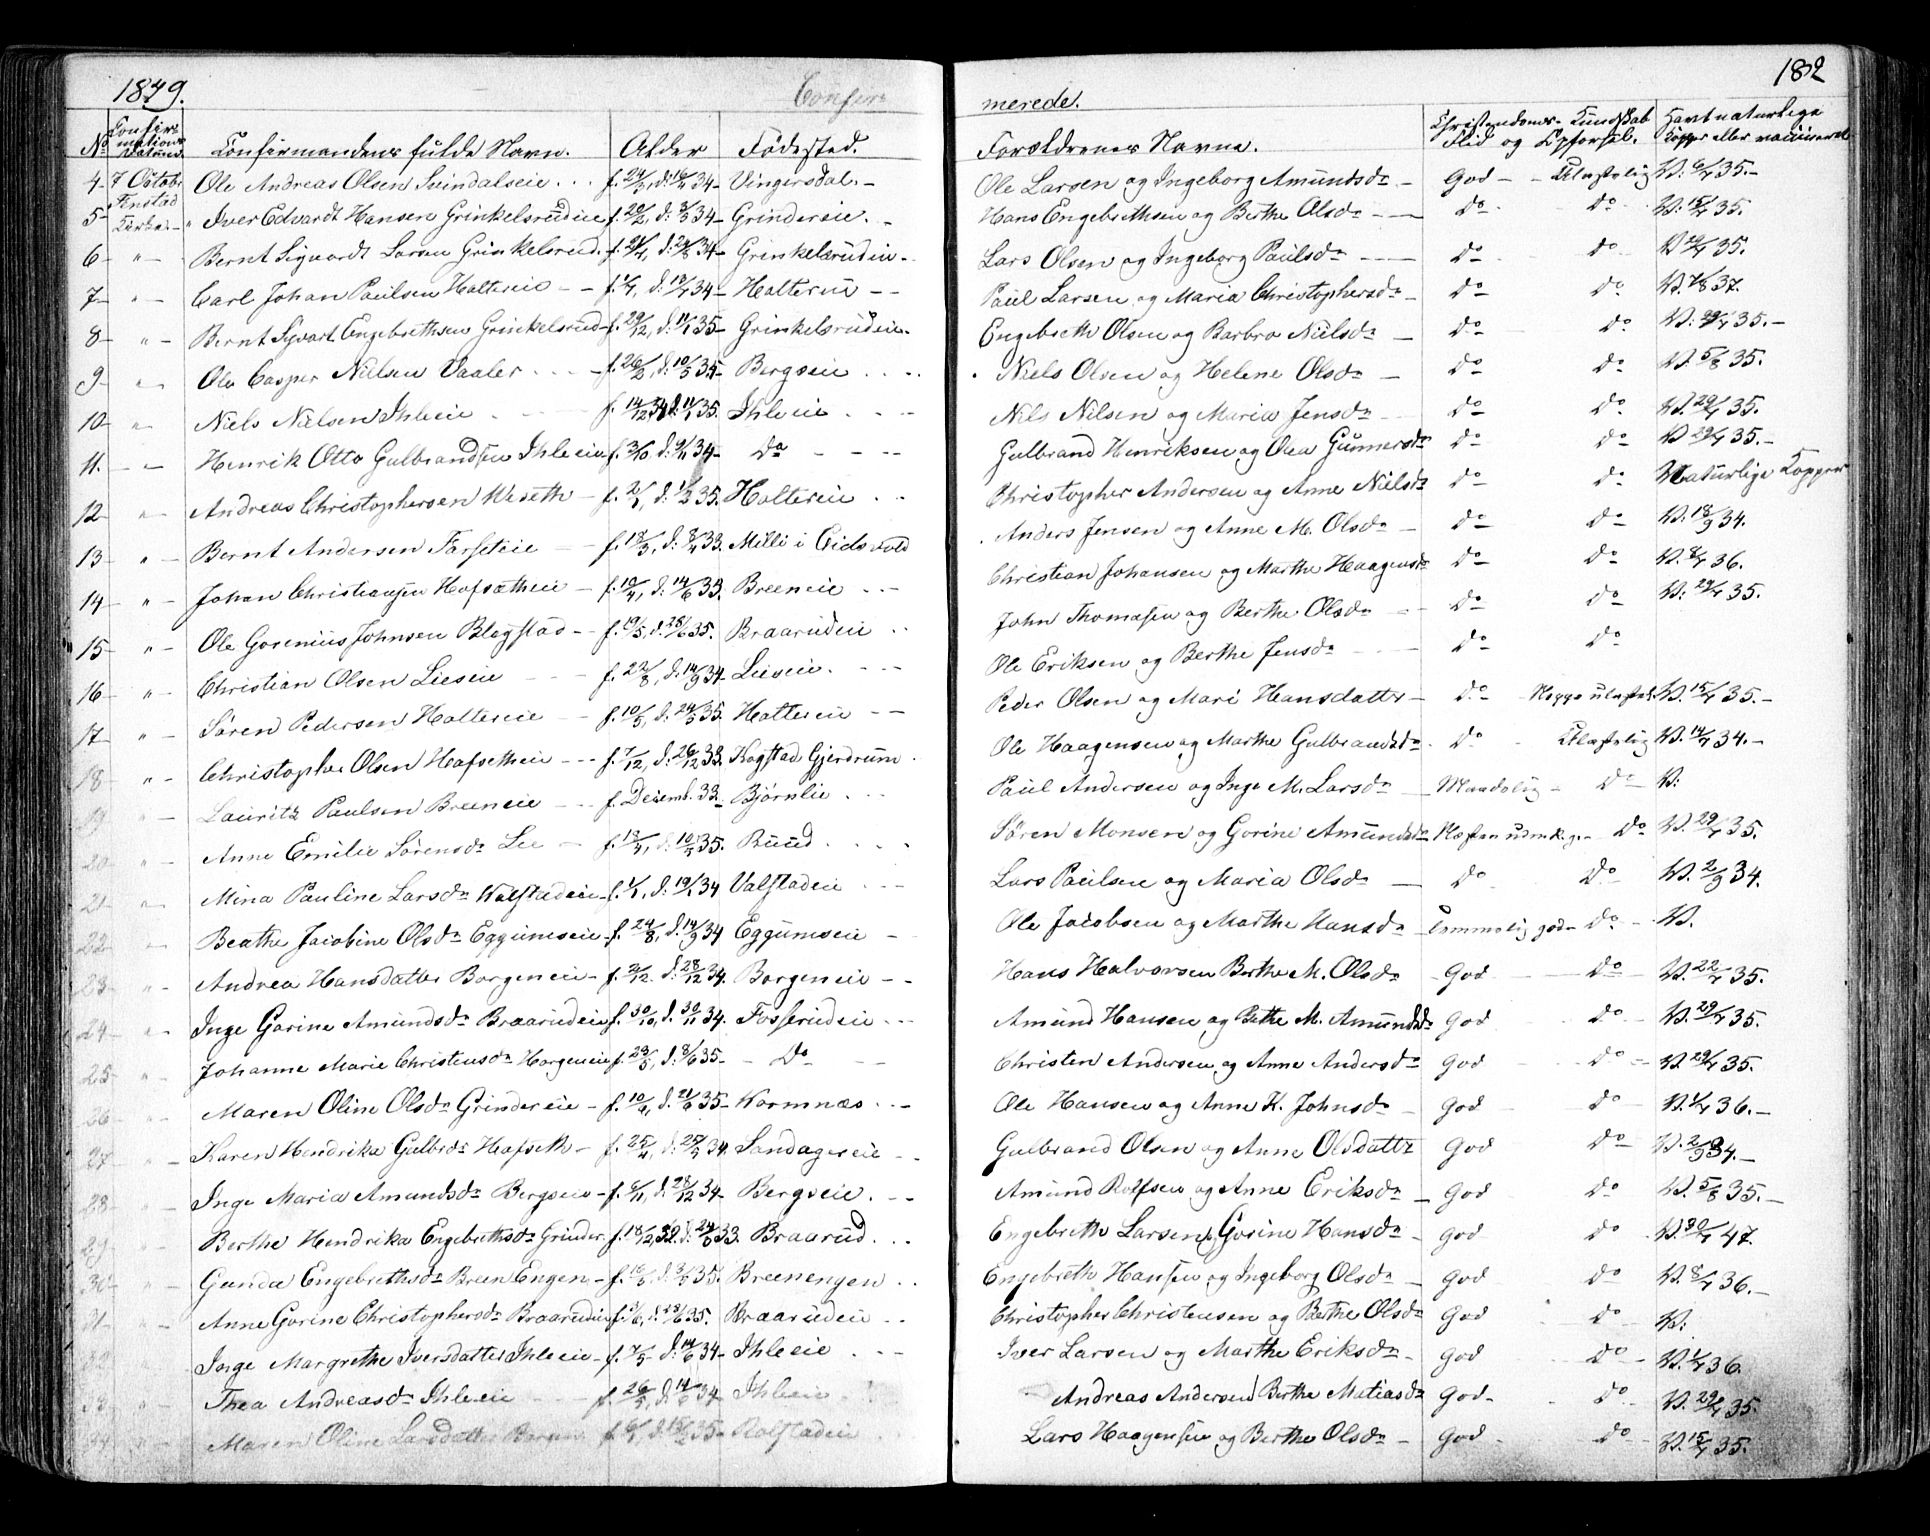 1849. Confir= merede. 182
No Confir= mations Datum. Confirmandens fulde Navn. Alder Fødested. Forældrenes Navne. Christendoms- Kundskab Flid og Opførsel. Havt naturlige Kopper eller vaccineret
4 7 Octobr. Ole Andreas Olsen Svindalseie f. 24/3, d. 16/4 34 Vingersdal. Ole Larsen og Ingeborg Amundsdr God Ulastelig V. 6/7 35.
5 Kirke. Iver Edvardt Hansen Grinkelsrudeie f. 20/2, d. 3/3 34 Grindereie. Hans Engebrethsen og Berthe Olsdr Do Do V. 15/7 35.
6 " Bernt Siguardt Larsen Grinkelsrud. Grinkelsrudeie. Lars Olsen og Ingeborg Paulsdr Do Do V 29/7 35.
7 " Carl Johan Paulsen Haltereie f. 1/7, d. 13/7 34 Paul Larsen og Maria Christophersdr Do Do V. 7/8 37.
8 " Bernt Syvart Engebrethsen Grinkelsrud f. 29/12, d. 11/1 35 Grinkelsrudeie. Engebreth Olsen og Barbro Nielsdr Do Do V. 29/7 35.
9 " Ole Casper Nielsen Vaaler f. 26/2, d. 10/5 35 Bergseie Niels Olsen og Helene Olsdr Do Do V. 5/8 35.
10 " Niels Nielsen Ihleeie f. 14/12 34 d. 11/1 35. Ihleeie Nils Nilsen og Maria Jensdr Do Do V. 29/7 35.
11. " Henrik Otto Gulbrandsen Ihleeie f. 3/10 d. 9/11 34 Do Gulbrand Henriksen og Olea Gunnersdr Do Do V 29/7 35.
12 " Andreas Christophersen Weseth f. 2/1, d. 1/2 35. Haltereie Christopher Andersen og Anne Nielsdr Do Do Naturlige Kopper
13 " Bernt Andersen Farseteie f. 18/3, d. 8/4 33. Milli i Eidsvold Anders Jensen og Anne M. Olsdr Do Do V. 18/9 34.
14 " Johan Christiansen Hofsætheie f. 10/4, d. 14/6 33. Breeneie Christian Johansen og Marthe Haagensdr Do Do V. 8/7 36.
15 " Ole Gorenius Johnsen Blegstad f. 19/5, d. 28/6 35. Braarudeie John Thomasen og Berthe Olsdr Do Do V. 29/7 35.
16 " Christian Olsen Lieseie f. 22/8, d. 14/9 34 Lieseie. Ole Eriksen og Berthe Jensdr Do Do
17 " Søren Pedersen Haltereie f. 10/5, d. 24/5 35. Haltereie Peder Olsen og Mari Hansdatter Do V. 15/7 35.
18 " Christopher Olsen Hafsetheie f. 7/12, d. 26/12 33. Kogstad Gjerdrum Ole Haagensen og Marthe Gulbrandsdr Do Ulastelig V. 14/7 34.
19 " Lauritz Paulsen Breeneie f. Decemb. 33 Bjørnlie Paul Andersen og Inge M. Larsdr Maadelig Do V:
20 " Anne Emilie Sørensdr Lee f. 18/4, d. 10/5 35. Ruud Søren Monsen og Gorine Amundsdr Næsten udmk.g. Do V. 29/7 35.
21 " Mina Pauline Larsdr Walstadeie f. 1/1, d. 19/1 34 Valstadeie Lars Paulsen og Maria Olsdr Do Do V. 2/9 34.
22 " Beathe Jacobine Olsdr Eggumseie f. 24/8, d. 14/9 34 Eggumseie Ole Jacobsen og Marthe Hansdr Temmelig god Do V.
23 " Andrea Hansdatter Borgeneie f. 2/12. d. 28/12 34. Borgeneie Hans Halvorsen Berthe M. Olsdr God Do V. 22/7 35.
24 " Inge Gorine Amundsdr Braarudeie f. 30/10, d. 30/11 34. Fosserudeie Amund Hansen og Bethe M. Amundsdr God Do V. 29/7 35.
25 " Johanne Marie Christensdr Horgeneie f. 23/5, d. 8/6 35. Do Christen Andersen og Anne Andersdr God Do V. 29/7 35.
26 " Maren Oline Olsdr Grindereie f. 10/4, d. 21/6 35 Wormnæs Ole Hansen og Anne K. Johnsdr God Do V. 1/7 36.
27 " Karen Hendrika Gulbrdr Hafseth f. 25/4, d. 27/5 34. Sandagereie Gulbrand Olsen og Anne Olsdattr God Do V. 2/9 34.
28 " Inge Maria Amundsdr Bergseie f. 8/11, d. 28/12 34 Bergseie. Amund Rolfsen og Anne Eriksdr God Do V. 5/8 35.
29 " Berthe Hendrika Engebrethsdr Grinder f. 18/12 32. d. 24/6 33. Braarud. Engebreth Larsen, Gorine Hansdr God Do V. 30/7 47.
30 " Gunda Engebrethsdr Breen Engen Breenengen Engebreth Hansen og Ingeborg Olsdr God Do V. 8/7 36.
31 " Anne Gorine Christophersdr Braarudeie Braarudeie Christopher Christensen og Berthe Olsdr God Do V.
Inge Margrethe Iversdatter Ihleeie f. 7/5 d. 14/6 34 Ihleeie Iver Larsen og Marthe Eriksdr God Do V. 1/7 36.
Thea Andreasdr Ihleeie f. 26/5, d. 14/6 34. Ihleeie Andreas Andersen Berthe Matiasdr God Do V. 29/7 35.
Maren Oline Larsdatter Rolstadeie Lars Haagensen og Berthe Olsdr God Do V. 15/7 35.